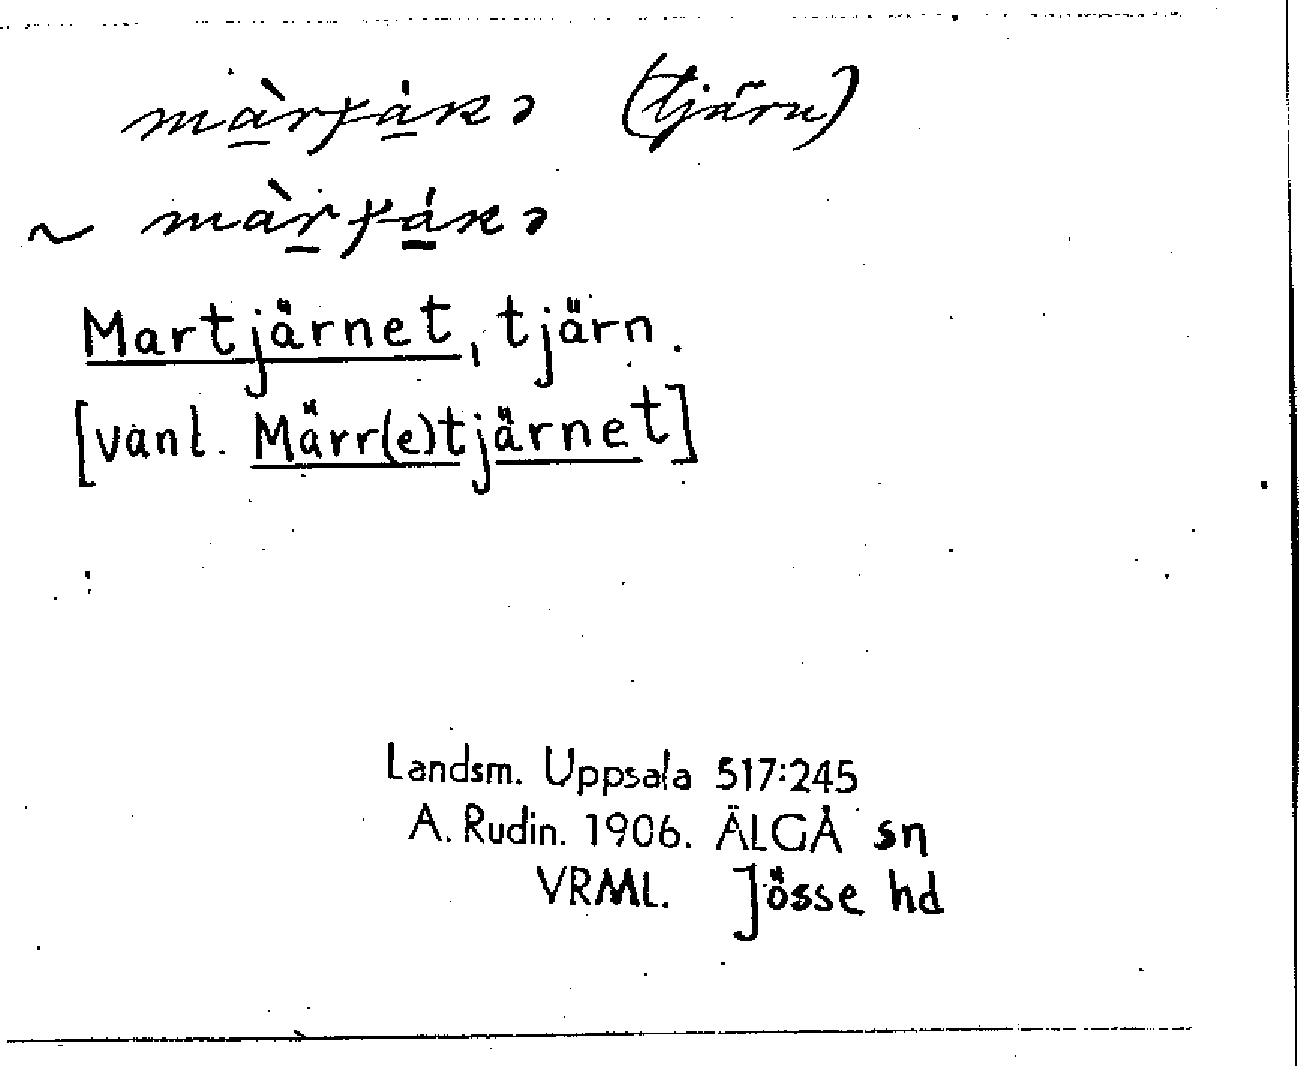 (tjärn)
~
Martjärnet, tjärn.
[vanl. Märr(e)tjärnet]
Landsm. Uppsala 517:245
A. Rudin. 1906. ÄLGÅ sn
VRML. Jösse hd